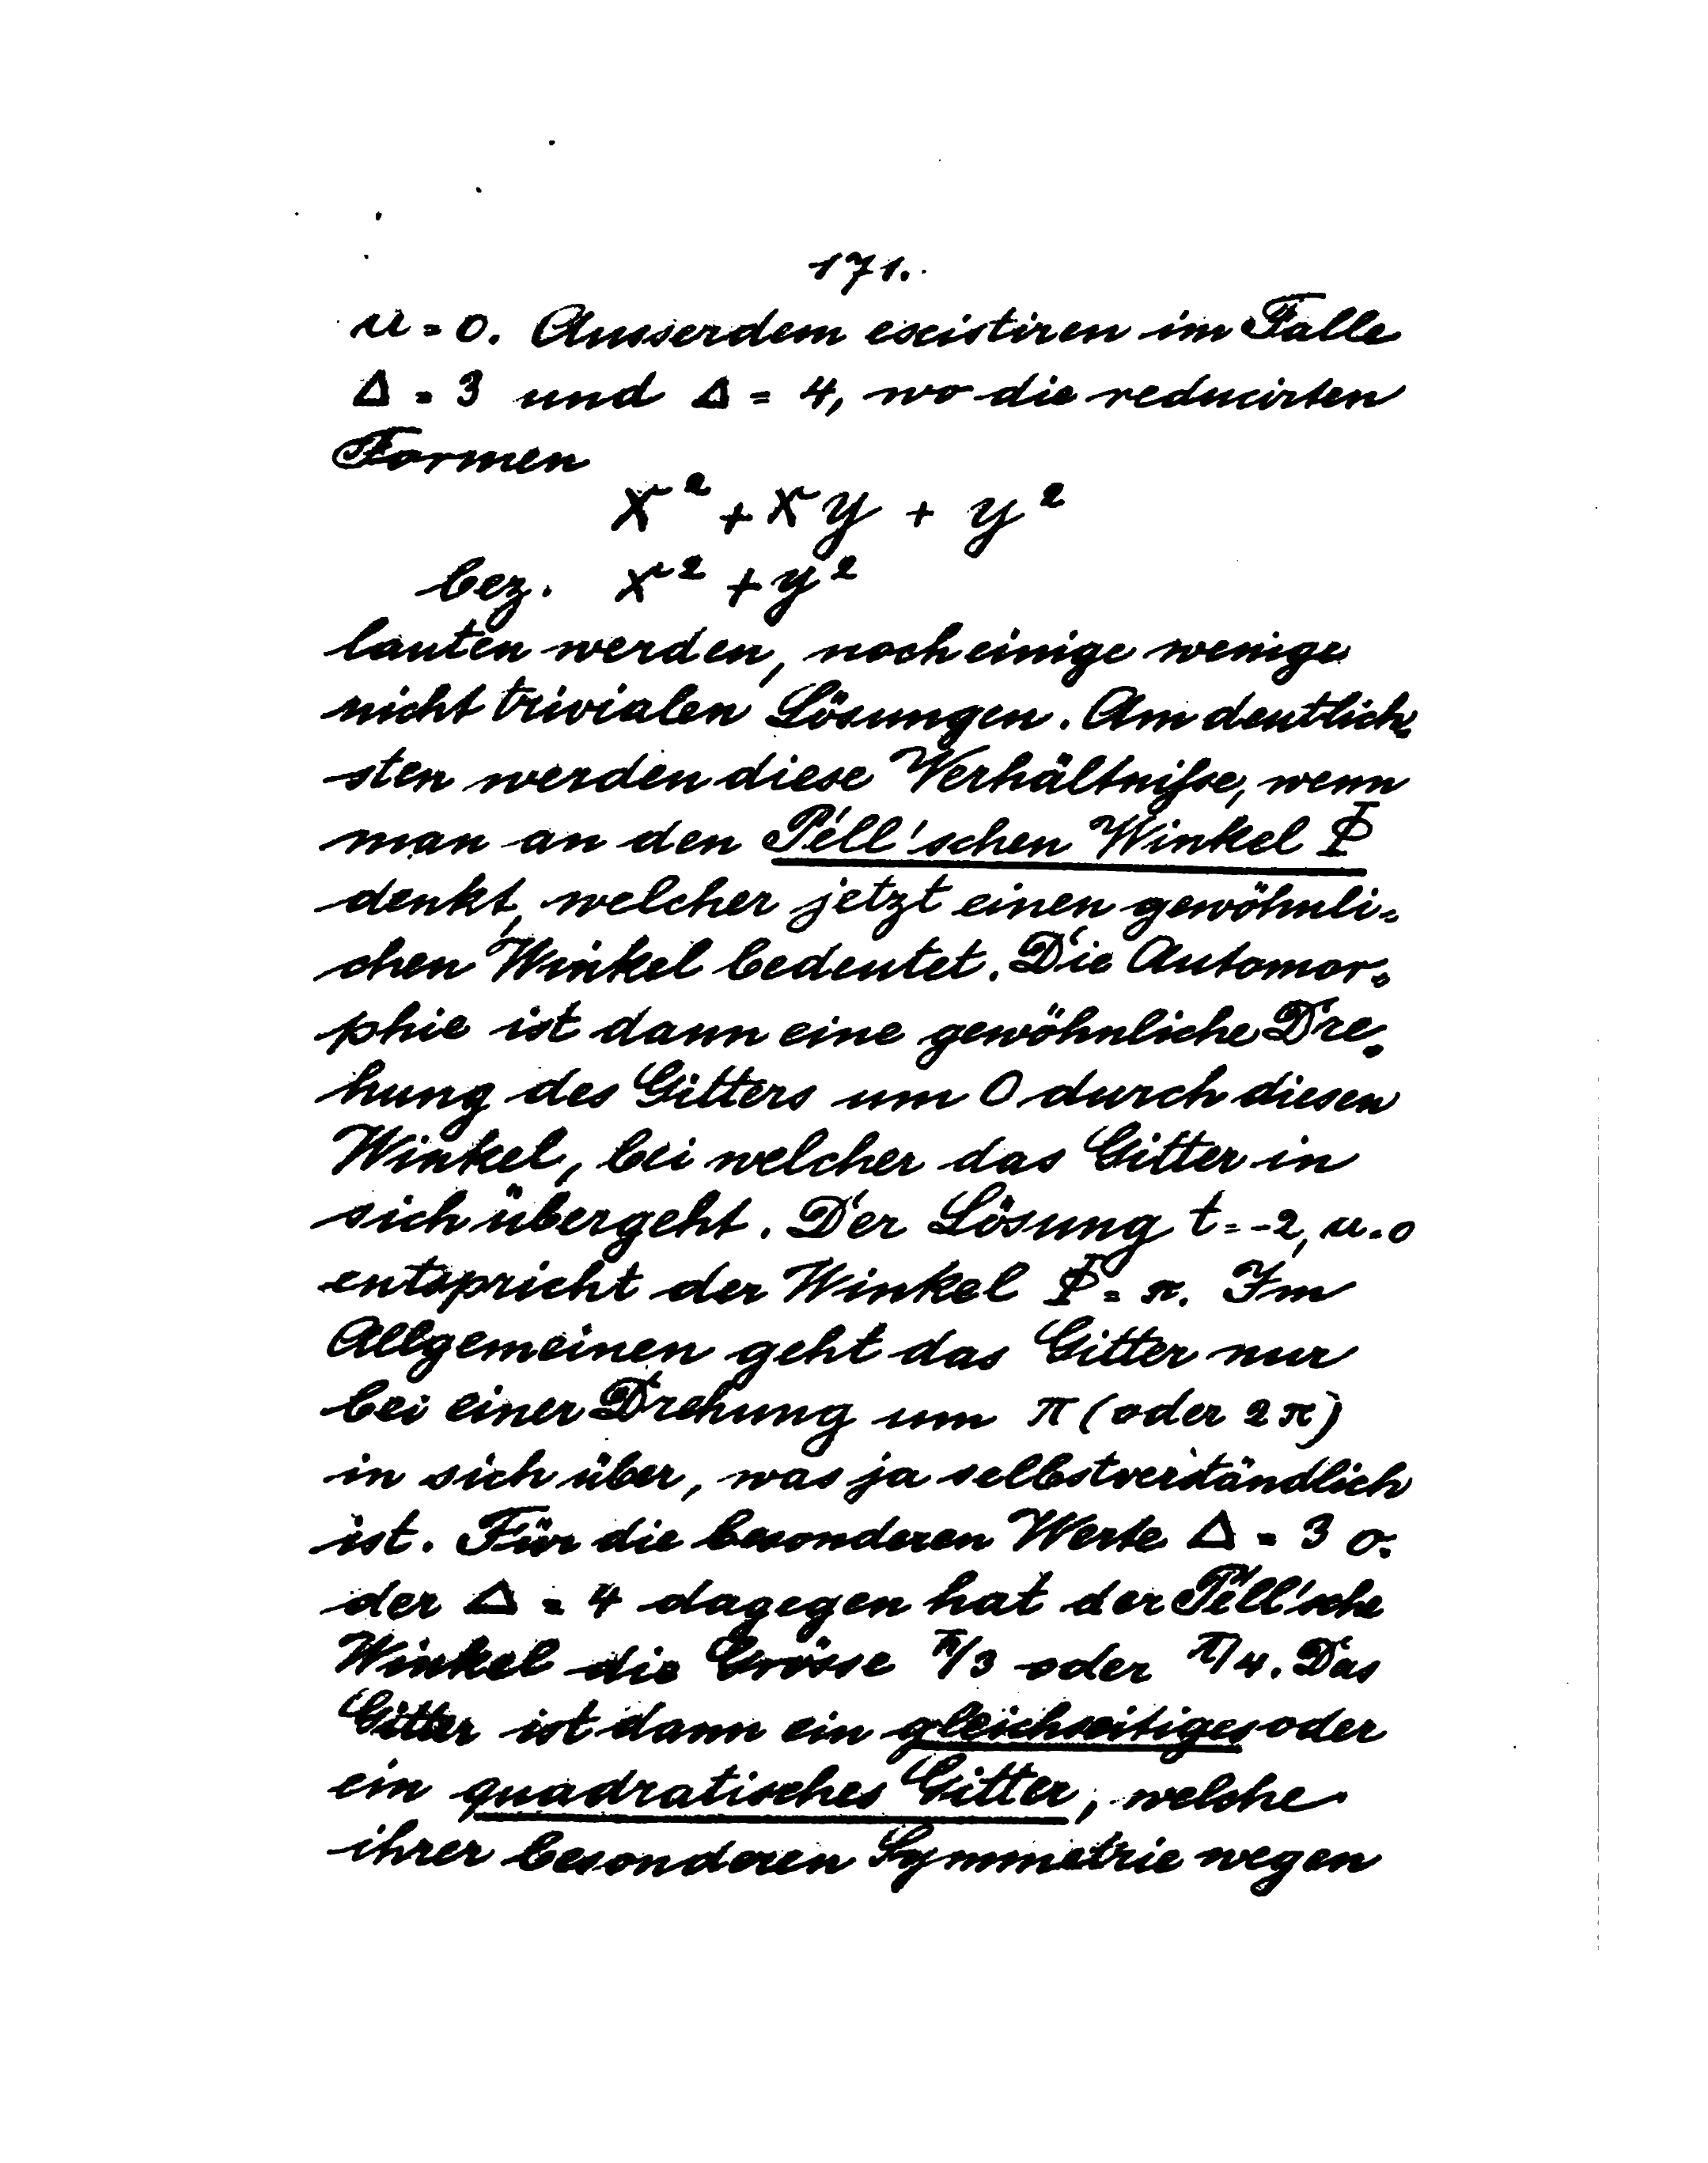 171.
u = 0. Ausserdem existiren im Falle
Δ = 3 und Δ = 4, wo die reducirten
Formen
x² + xy + y²
bez. x² + y²
lauten werden, noch einige wenige
nicht trivialen Lösungen. Am deutlich=
sten werden diese Verhältnisse, wenn
man an den Pell'schen Winkel Φ
denkt, welcher jetzt einen gewöhnli=
chen Winkel bedeutet. Die Automor=
phie ist dann eine gewöhnliche Dre=
hung des Gitters um O durch diesen
Winkel, bei welcher das Gitter in
sich übergeht. Der Lösung t = -2, u = 0
entspricht der Winkel Φ = π. Im
Allgemeinen geht das Gitter nur
bei einer Drehung um π (oder 2π)
in sich über, was ja selbstverständlich
ist. Für die besonderen Werte Δ = 3 o=
der Δ = 4 dagegen hat der Pell'sche
Winkel die Grösse π/3 oder π/4. Das
Gitter ist dann ein gleichseitiges oder
ein quadratisches Gitter, welche
ihrer besonderen Symmetrie wegen